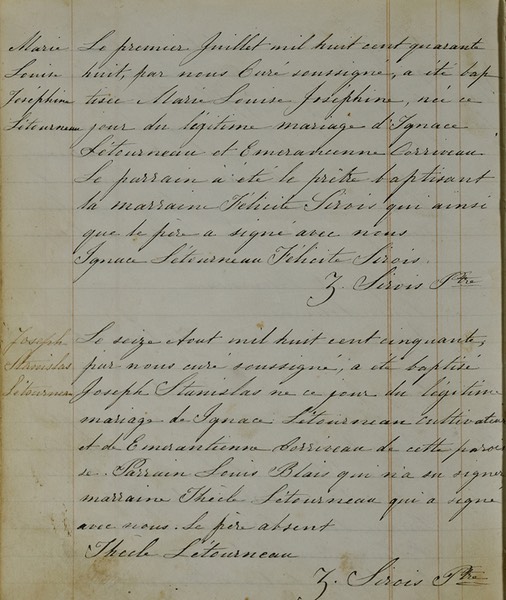 Marie
Louise
Joséphine
Létourneau
Le premier Juillet mil huit cent quarante
huit, par nous Curé soussigné, a été bap
tisée Marie Louise Joséphine, née ce
jour du légitime mariage d'Ignace
Létourneau et Emerancienne Corriveau.
Le parrain a été le prêtre baptisant
la marraine Félicité Sirois qui ainsi
que le père a signé avec nous
Ignace Létourneau Félicité Sirois.
Z. Sirois Ptre
Joseph
Stanislas
Létourneau
Le seize Aout mil huit cent cinquante,
par nous curé soussigné, a été baptisé
Joseph Stanislas né ce jour du légitime
mariage de Ignace Létourneau cultivateur
et de Emérantienne Corriveau de cette parois
se. Parrain Louis Blais qui n'a su signer
marraine Thècle Létourneau qui a signé
avec nous. Le père absent
Thècle Létourneau
Z. Sirois Ptre